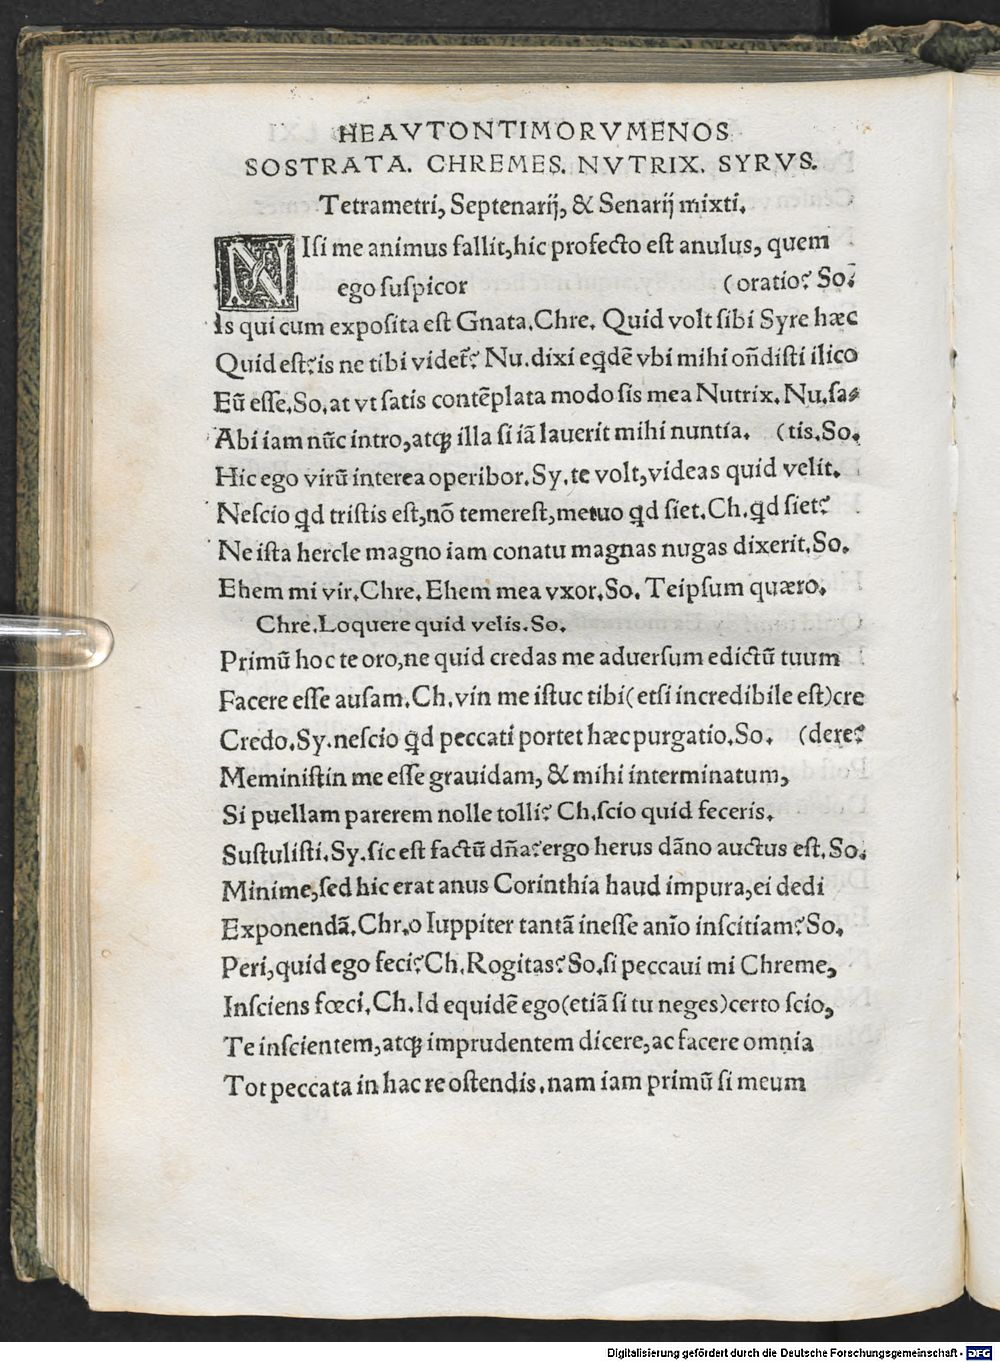 HEAVTONTIMORVMENOS
SOSTRATA. CHREMES. NVTRIX. SYRVS.
Tetrametri, Septenarij, & Senarij mixti.
NIsi me animus fallit, hic profecto est anulus, quem
ego suspicor (oratio? So.
Is qui cum exposita est Gnata. Chre. Quid volt sibi Syre hæc
Quid est? is ne tibi videt̃? Nu. dixi eq̃dẽ vbi mihi oñdisti ilico
Eũ esse. So. at vt satis contẽplata modo sis mea Nutrix. Nu. sa-
Abi iam nũc intro, atq; illa si iã lauerit mihi nuntia. (tis. So.
Hic ego virũ interea operibor. Sy. te volt, videas quid velit.
Nescio qd tristis est, nõ temerest, metuo qd siet. Ch. qd siet?
Ne ista hercle magno iam conatu magnas nugas dixerit. So.
Ehem mi vir. Chre. Ehem mea vxor. So. Teipsum quæro.
Chre. Loquere quid velis. So.
Primũ hoc te oro, ne quid credas me aduersum edictũ tuum
Facere esse ausam. Ch. vin me istuc tibi (etsi incredibile est) cre
Credo. Sy. nescio qd peccati portet hæc purgatio. So. (dere?
Meministin me esse grauidam, & mihi interminatum,
Si puellam parerem nolle tolli? Ch. scio quid feceris.
Sustulisti. Sy. sic est factũ dña? ergo herus dãno auctus est. So.
Minime, sed hic erat anus Corinthia haud impura, ei dedi
Exponendã. Chr. o Iuppiter tantã inesse anĩo inscitiam? So.
Peri, quid ego feci? Ch. Rogitas? So. si peccaui mi Chreme,
Insciens fœci. Ch. Id equidẽ ego (etiã si tu neges) certo scio,
Te inscientem, atq; imprudentem dicere, ac facere omnia
Tot peccata in hac re ostendis. nam iam primũ si meum
Digitalisierung gefördert durch die Deutsche Forschungsgemeinschaft - DFG